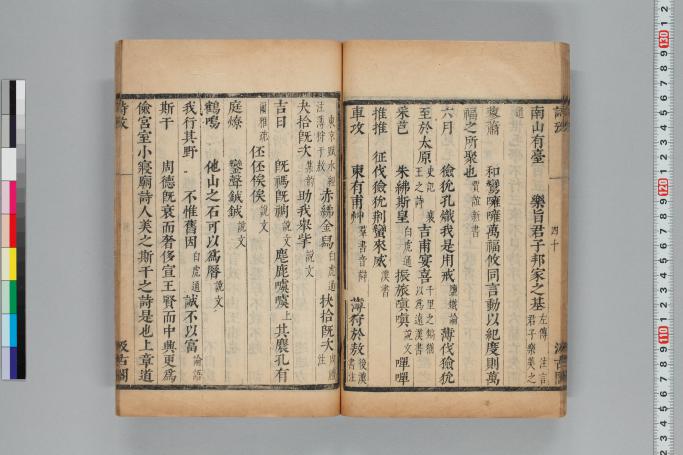 詩攷
四十
汲古閣
南山有臺 樂旨君子邦家之基 左傳 注言君子樂美之
蓼蕭 和鸞噰噰萬福攸同言動以紀度則萬
福之所聚也 賈誼新書
六月 獫狁孔熾我是用戒 鹽鐵論 薄伐獫狁
至於太原 史記 襄王之詩 吉甫宴喜 漢書
采芑 朱紼斯皇 白虎通 振旅嗔嗔 說文 嘽嘽
推推 征伐獫狁荆蠻來威 漢書
車攻 東有甫艸 羣書音辯 薄狩於敖 後漢書注
東京賦 水經注薄狩于敖 赤紼金舄 白虎通 抉拾旣次 周禮注
夬拾旣次 集韻 助我舉㧘 說文
吉日 旣禡旣禂 說文 麀鹿噳噳 上 其麎孔有
爾雅疏 伾伾俟俟 說文
庭燎 鑾聲鉞鉞 說文
鶴鳴 他山之石可以爲厝 說文
我行其野 不惟舊因 白虎通 誠不以富 論語
斯干 周德旣衰而奢侈宣王賢而中興更爲
儉宮室小寢廟詩人美之斯干之詩是也上章道
詩攷
汲古閣